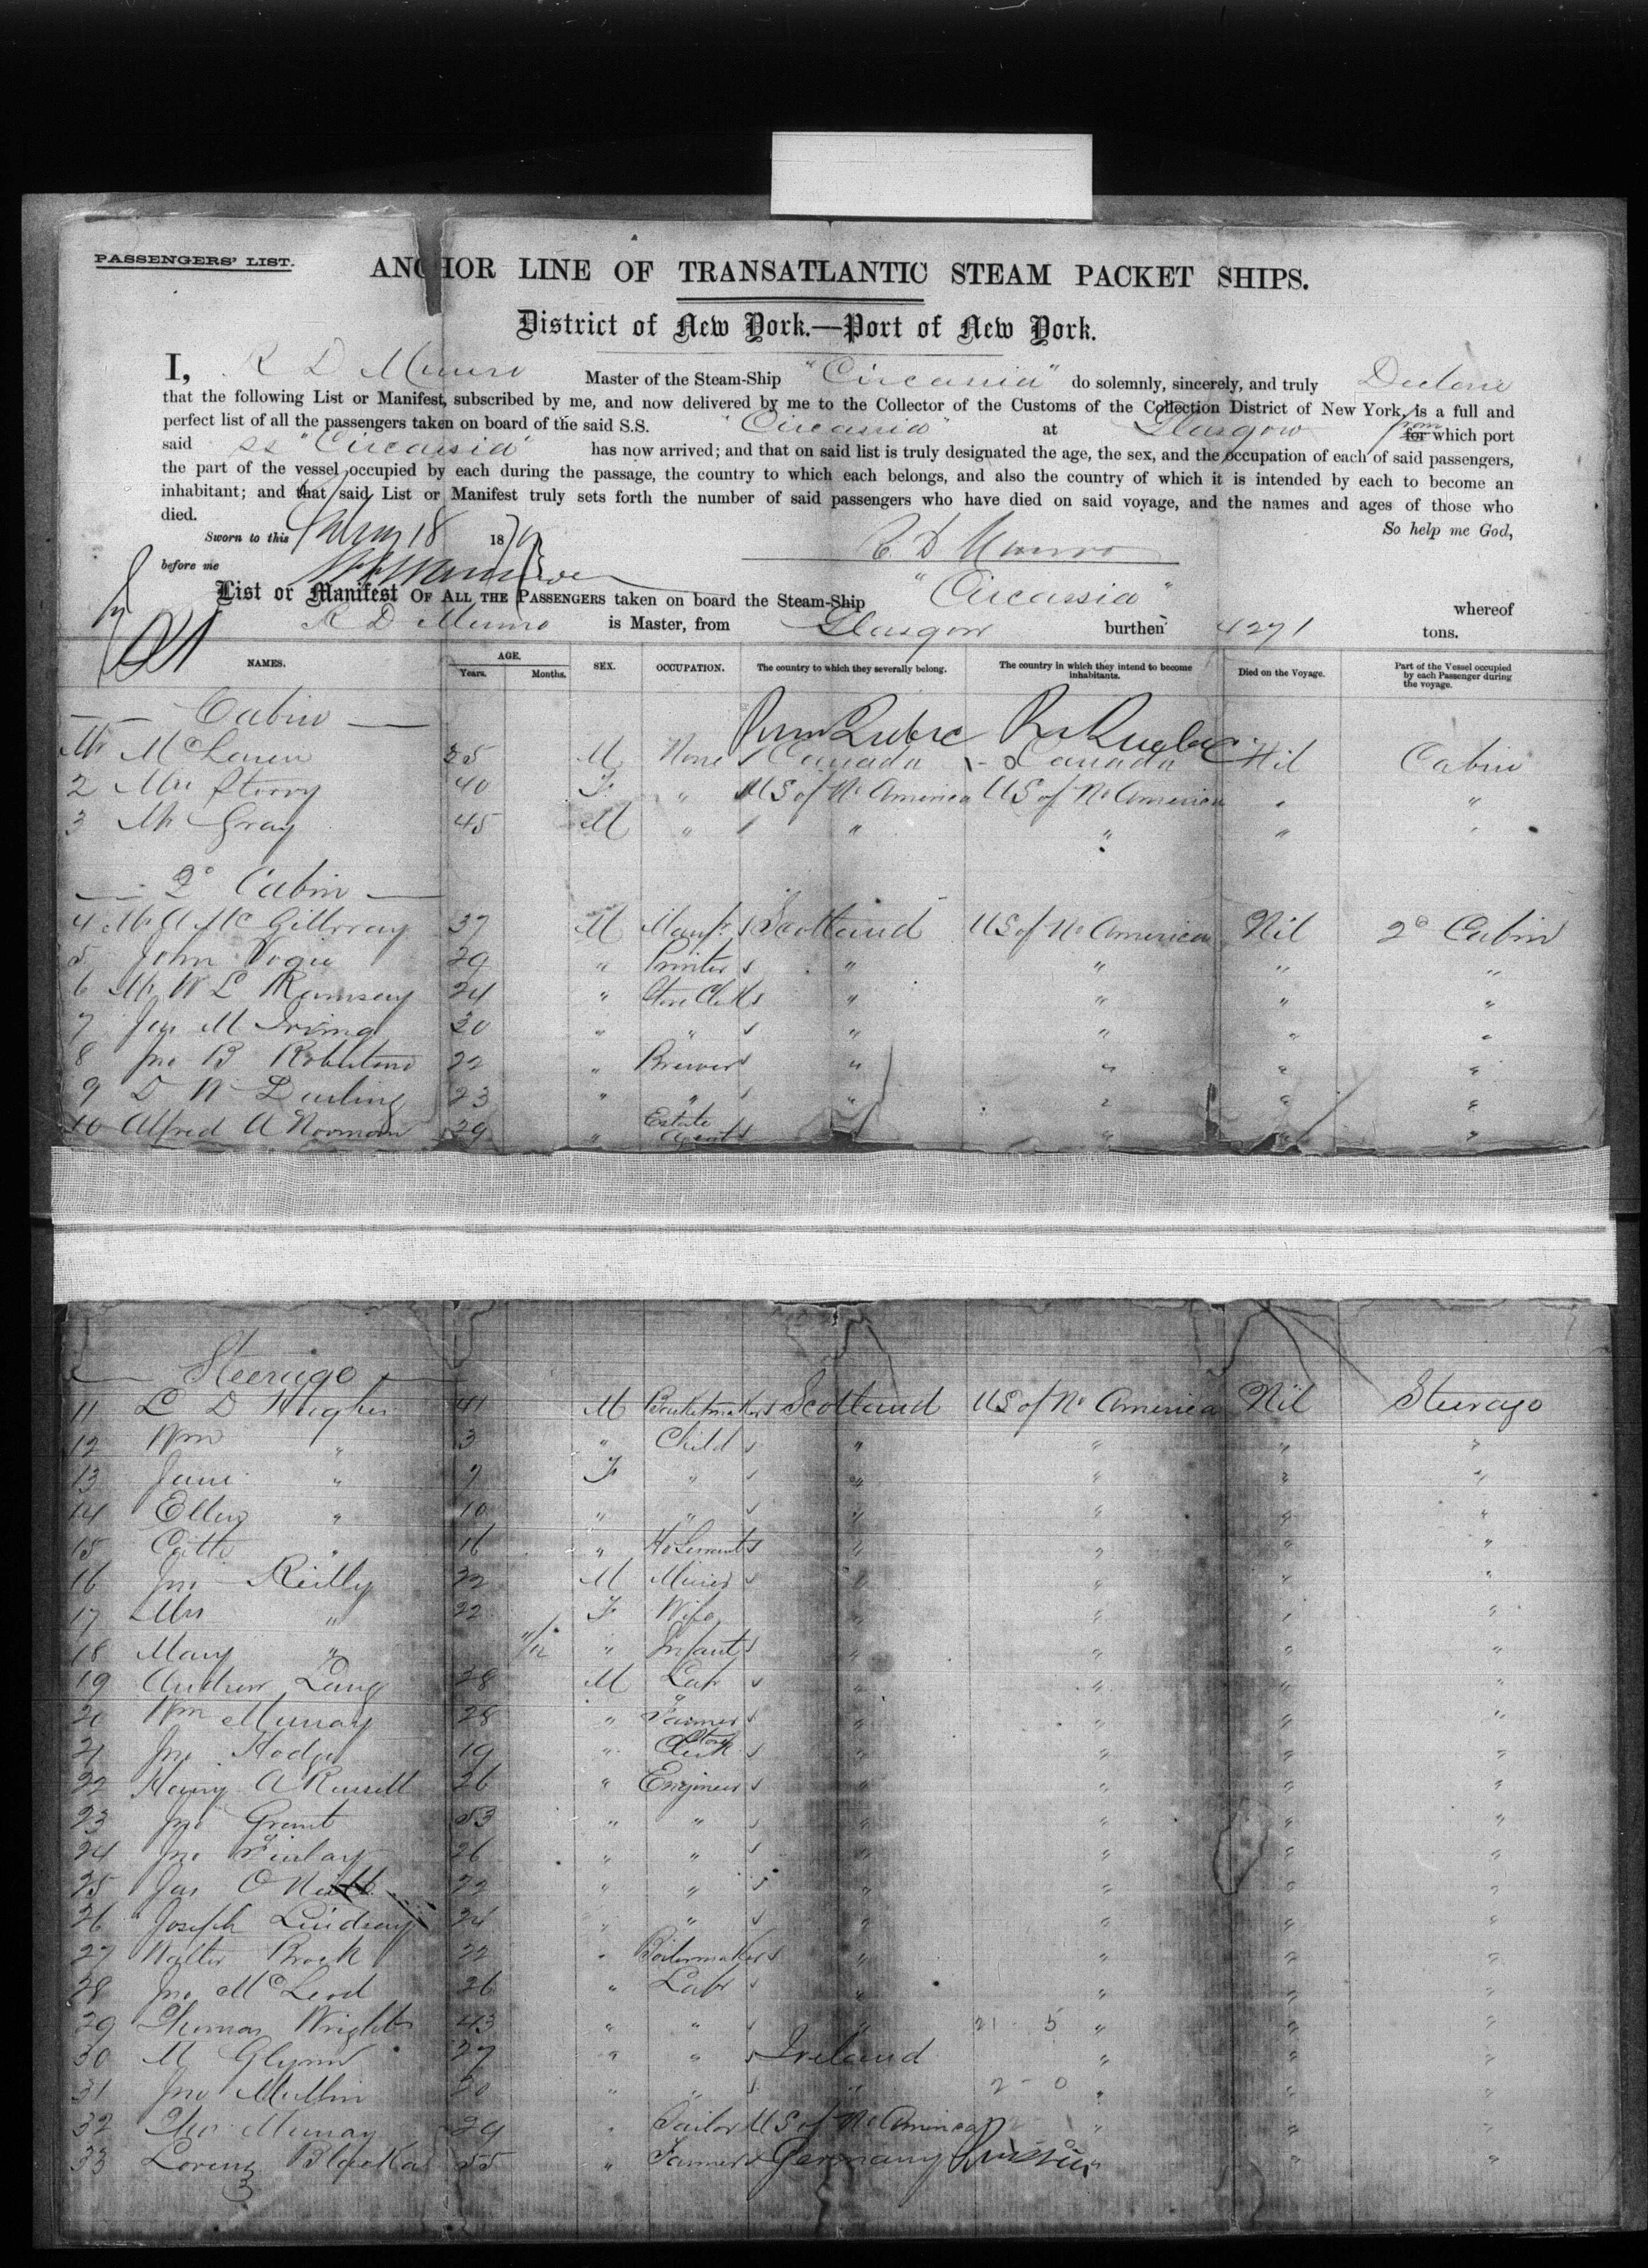 PASSENGERS' LIST.
ANCHOR LINE OF TRANSATLANTIC STEAM PACKET SHIPS.
District of New York.—Port of New York.
I, R D Munro Master of the Steam-Ship "Circassia" do solemnly, sincerely, and truly Declare
that the following List or Manifest, subscribed by me, and now delivered by me to the Collector of the Customs of the Collection District of New York, is a full and
perfect list of all the passengers taken on board of the said S.S. "Circassia" at Glasgow from for which port
said ss "Circassia" has now arrived; and that on said list is truly designated the age, the sex, and the occupation of each of said passengers,
the part of the vessel occupied by each during the passage, the country to which each belongs, and also the country of which it is intended by each to become an
inhabitant; and that said List or Manifest truly sets forth the number of said passengers who have died on said voyage, and the names and ages of those who
died. So help me God,
Sworn to this 18 18 R D Munro
before me
List or Manifest OF ALL THE PASSENGERS taken on board the Steam-Ship "Circassia" whereof
R D Munro is Master, from Glasgow burthen 4271 tons.
NAMES. AGE. Years. Months. SEX. OCCUPATION. The country to which they severally belong. The country in which they intend to become inhabitants. Died on the Voyage. Part of the Vessel occupied by each Passenger during the voyage.
Cabin
Mr McLaren M None Canada Canada Nil Cabin
2 Mrs Storry 40 F " US of No America US of No America " "
3 Mr Gray 45 M " " " " "
2d Cabin
4 Mr A McGillvray 37 M Manfr Scotland US of No America Nil 2d Cabin
5 John Vogie 29 " Printer " " " "
6 Mr W L Ramsay 24 " Store Clk " " " "
7 Jas M Irving 30 " " " " " "
8 Jno B Robertson 22 " Brewer " " " "
9 D W Darling 23 " " " " " "
10 Alfred A Norman 29 " Estate Agent " " "
Steerage
11 L D Hughes 41 M Basketmaker Scotland US of No America Nil Steerage
12 Wm " 3 " Child " " " "
13 Jane " 7 F " " " " "
14 Ellen " 10 " " " " " "
15 " 16 " Ho Servant " " " "
16 Jno Reilly 22 M Miner " " " "
17 Mrs " 22 F Wife " " " "
18 Mary " 11/12 " Infant " " " "
19 Andrew Lang 28 M Labr " " " "
20 Wm Murray 28 " Farmer " " " "
21 Jno Hodge 19 " Store Clerk " " " "
22 Henry A Russell 26 " Engineer " " " "
23 Jno Grant 53 " " " " " "
24 Jno Finlay 26 " " " " " "
25 Jas O'Neill 22 " " " " " "
26 Joseph Lindsay 24 " " " " " "
27 Walter Brock 22 " Boilermaker " " " "
28 Jno McLeod 26 " Labr " " " "
29 Thomas Wright 43 " " " 21 5 " " "
30 M Glynn 27 " " Ireland " " "
31 Jno Mullin 20 " " " 2 - 0 " " "
32 Thos Murray 29 " Tailor US of No America " " "
33 Lorenz 55 " Farmer Germany " " "
3